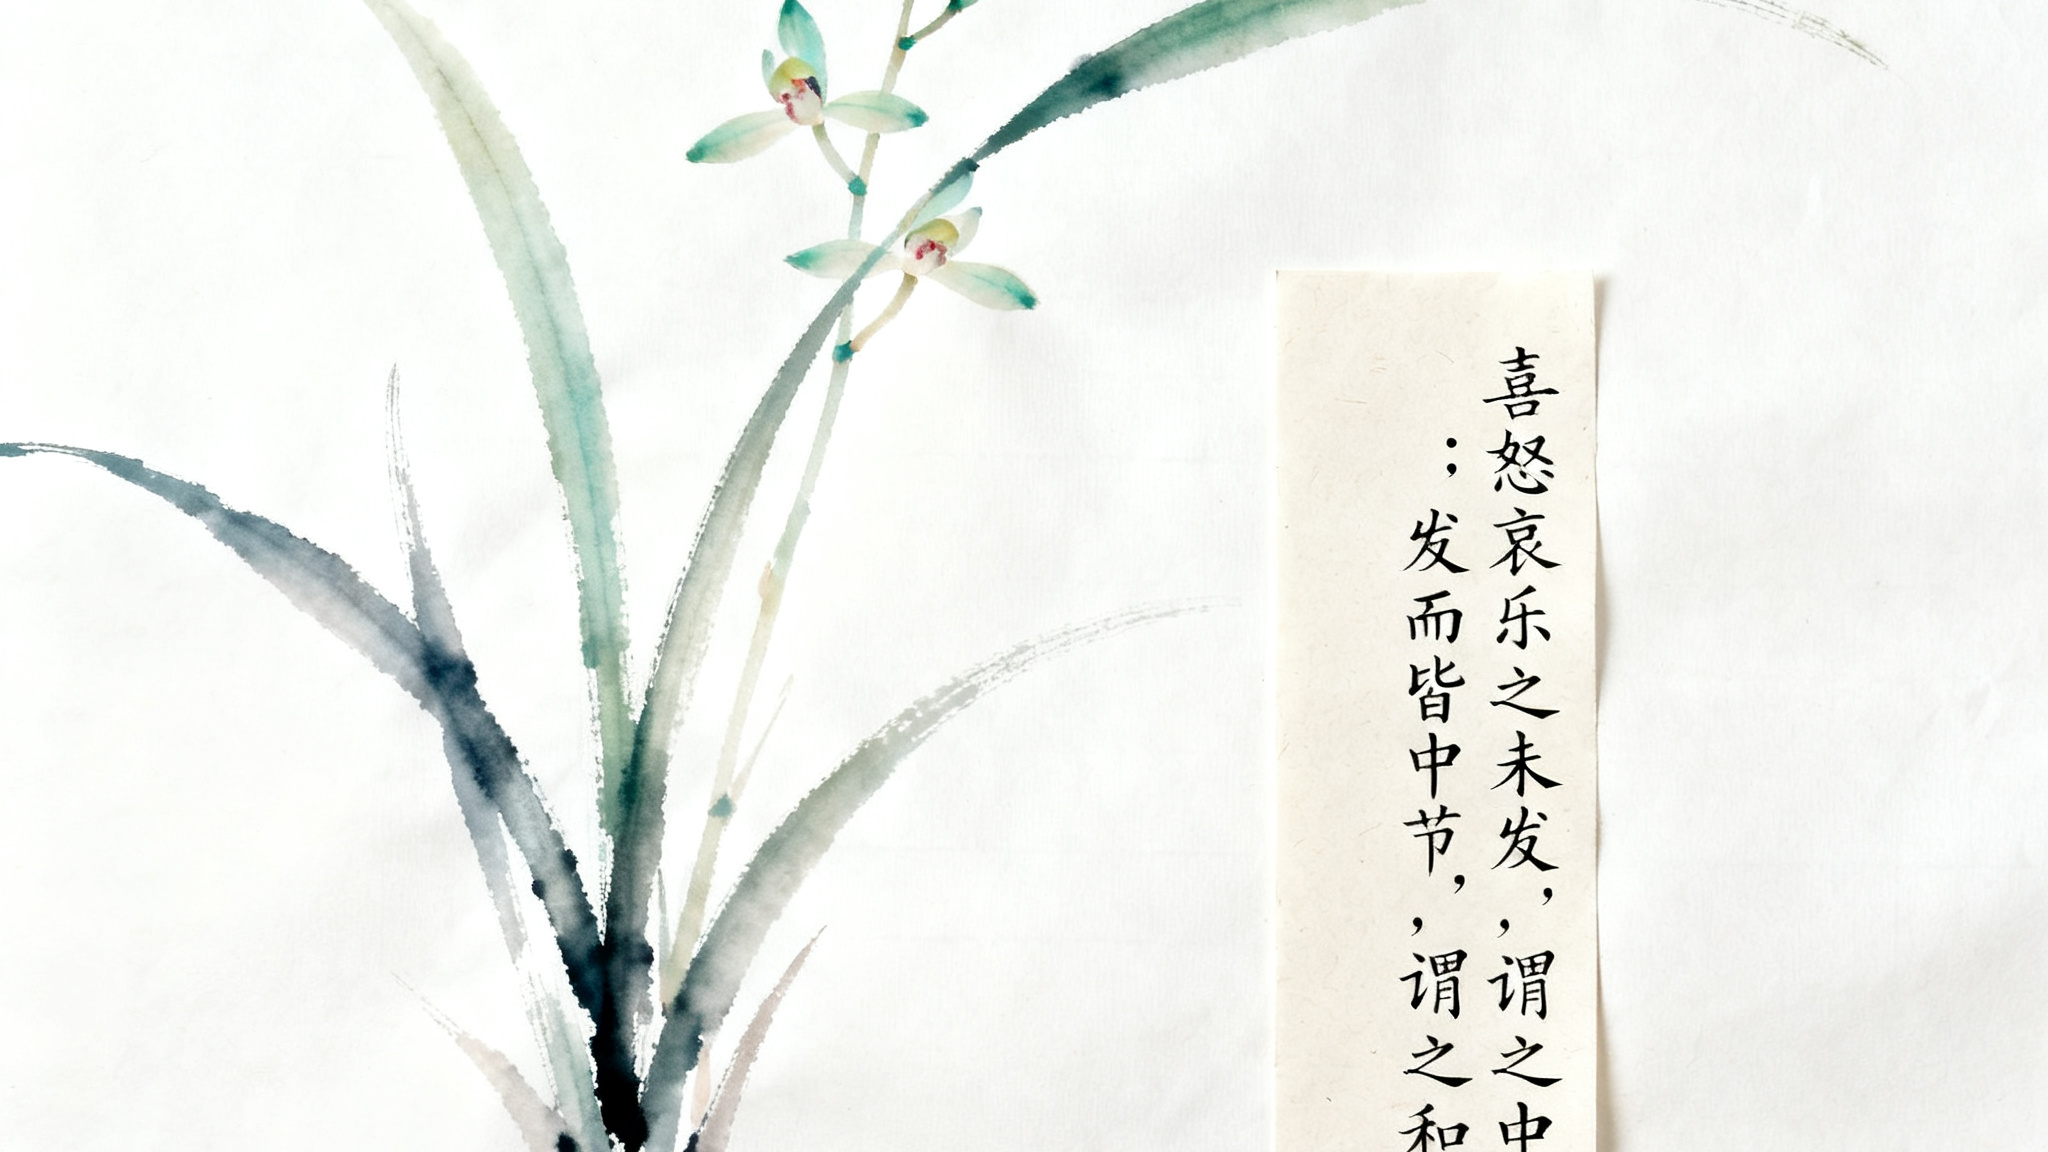 喜怒哀乐之未发,,谓之中
;发而皆中节,,谓之和